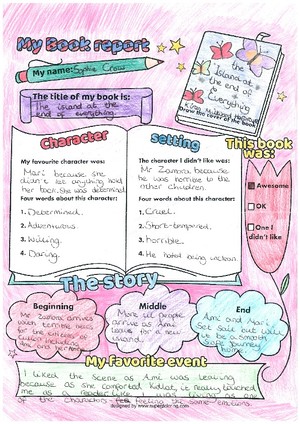 My Book report
My name: Sophie Crow
The title of my book is:
The island at the
end of everything.
the
Island at
the end
of
Everything
Draw the cover of the book
Character
setting
This book
was:
My favourite character was:
Mari because she
didn't let anything hold
her back. She was determined.
Four words about this character:
1. Determined.
2. Adventurous
3. Willing.
4. Daring.
The character I didn't like was:
Mr Zamora because
he was horrible to the
other Children.
Four words about this character:
1. Cruel.
2. Short-tempered.
3. horrible.
4. He hated being unclean.
Awesome
OK
One I
didn't like
The story
Beginning
Mr Zamora arrives
with terrible news
for the
Culion including
Ami and her
Middle
More ill people
arrive as Ami
leaves for a new
island.
End
Ami and Mari
set sail but will
it be a smooth
journey
home.
My favorite event
I liked the scene as Ami was leaving
because as she comforted Kidlat, it really touched
me as a reader like I was living as one
of the Characters feeling the same emotions.
designed by www.supercoloring.com